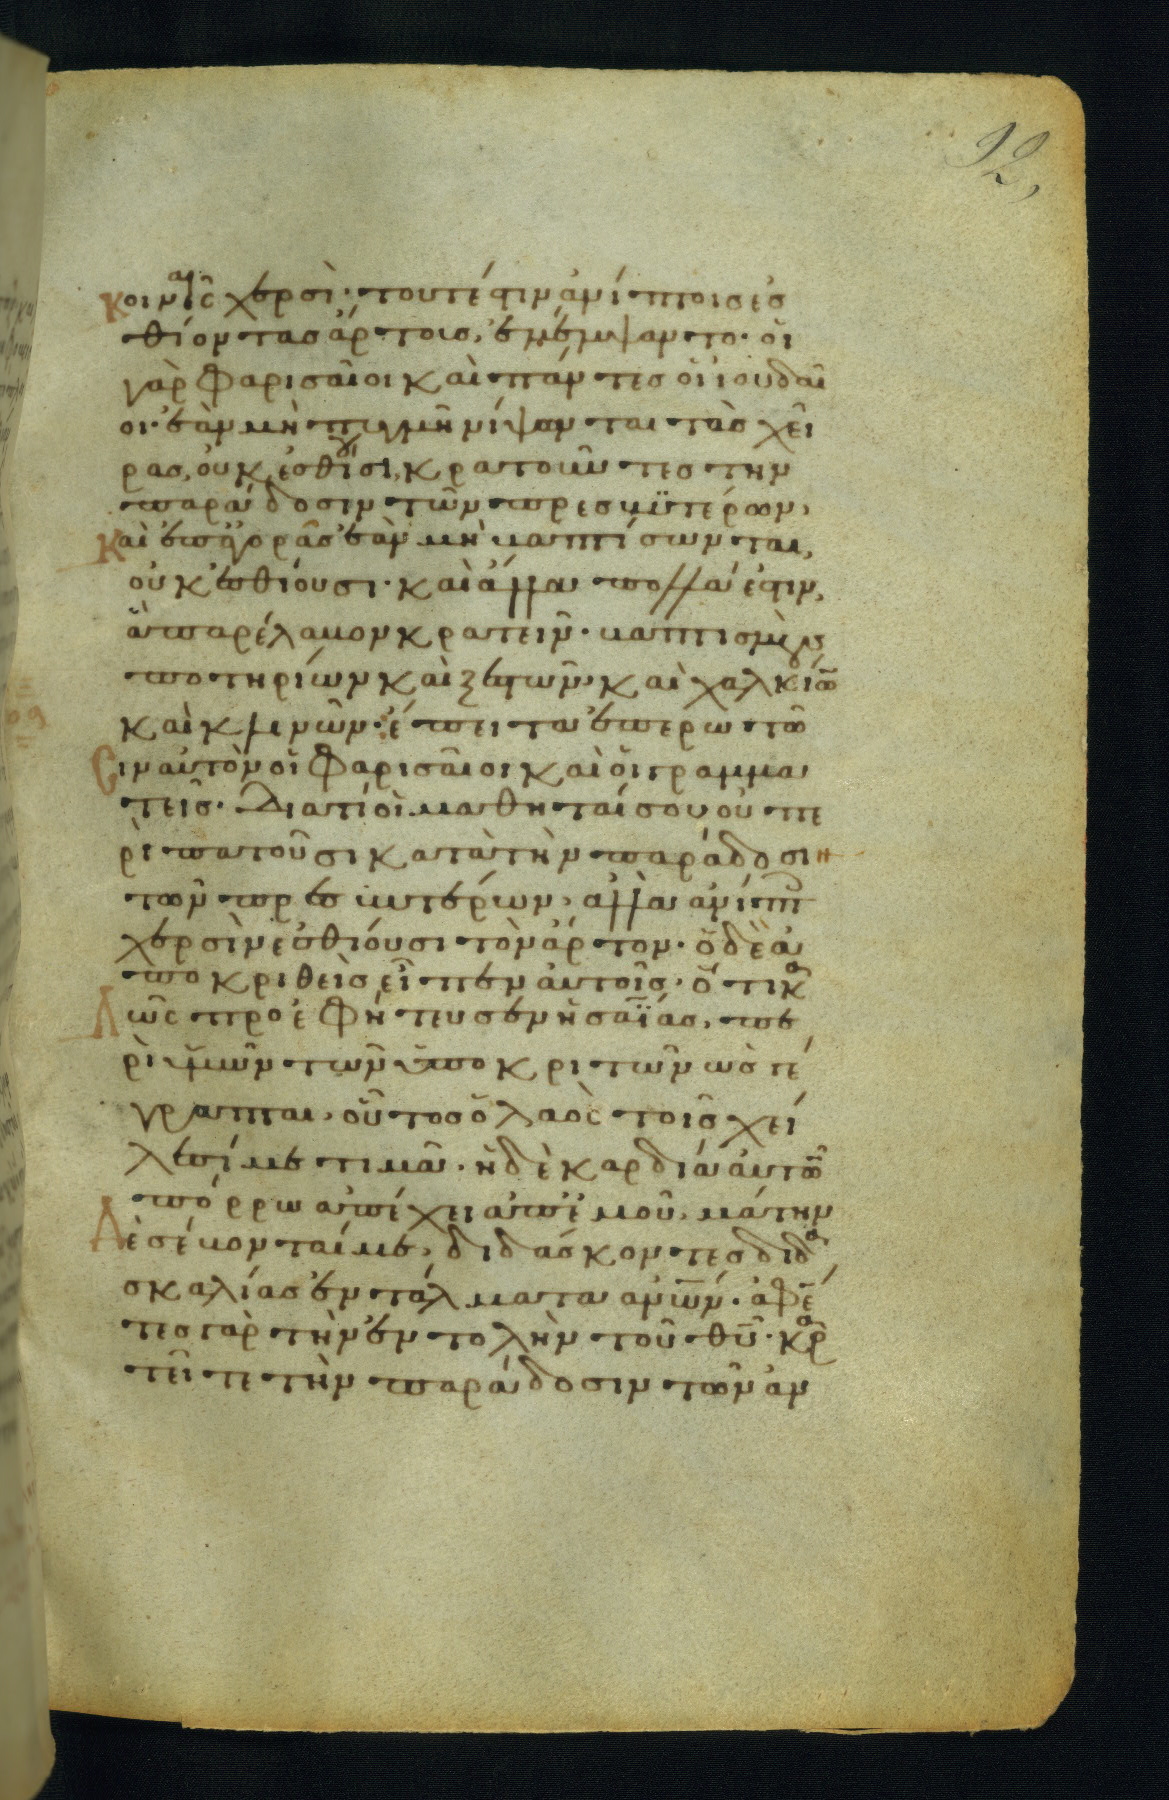 92,
κοιναῖς χερσὶ· τουτέστιν ἀνίπτοις ἐσ
θίοντας ἄρτους, ἐμέμψαντο· οἱ
γὰρ φαρισαῖοι καὶ πάντες οἱ ἰουδαῖ
οι· ἐὰν μὴ πυγμῆ νίψωνται τὰς χεῖ
ρας, οὐκ ἐσθίουσι, κρατοῦντες την
παράδοσιν τῶν πρεσβϋτέρων,
Καὶ ἀπὸ ἀγορᾶς ἐὰν μὴ βαπτίσωνται,
οὐκ ἐσθίουσι· καὶ ἄλλα πολλά ἐστιν,
ἃ παρέλαβον κρατεῖν· βαπτισμοὺς
ποτηρίων καὶ ξεστῶν καὶ χαλκίω̅
καὶ κλινῶν· ἔπειτα ἐπερωτῶ
Σιν αὐτὸν οἱ φαρισαῖοι καὶ οἱ γραμμα
τεῖς· Διατί οἱ μαθηταί σου οὐ πε
ριπατοῦσι κατὰ τὴν παράδοσι
τῶν πρεσβυτέρων, ἀλλὰ ἀνίπτ
χερσὶν ἐσθίουσι τὸν ἄρτον· ὁ δὲ ἀ
ποκριθεὶς εἶπεν αὐτοῖς· ὅτι κα
Λῶς προεφήτευσεν ἠσαΐας, πε
ρὶ ὑμῶν τῶν ὑποκριτῶν ὡς γέ
γραπται, οὗτος ὁ λαὸς τοῖς χεί
λεσί με τιμᾶ· ἡ δὲ καρδία αὐτῶ̅
πόρρω ἀπέχει ἀπ' ἐμοῦ, μάτην
Δὲ σέβονταί με, διδάσκοντες διδα
σκαλίας ἐντάλματα ἀν̅ω̅ν· ἀφέ̅
τες γὰρ τὴν ἐντολὴν τοῦ θ̅υ̅· κρα
τεῖτε τὴν παράδοσιν τῶν ἀν